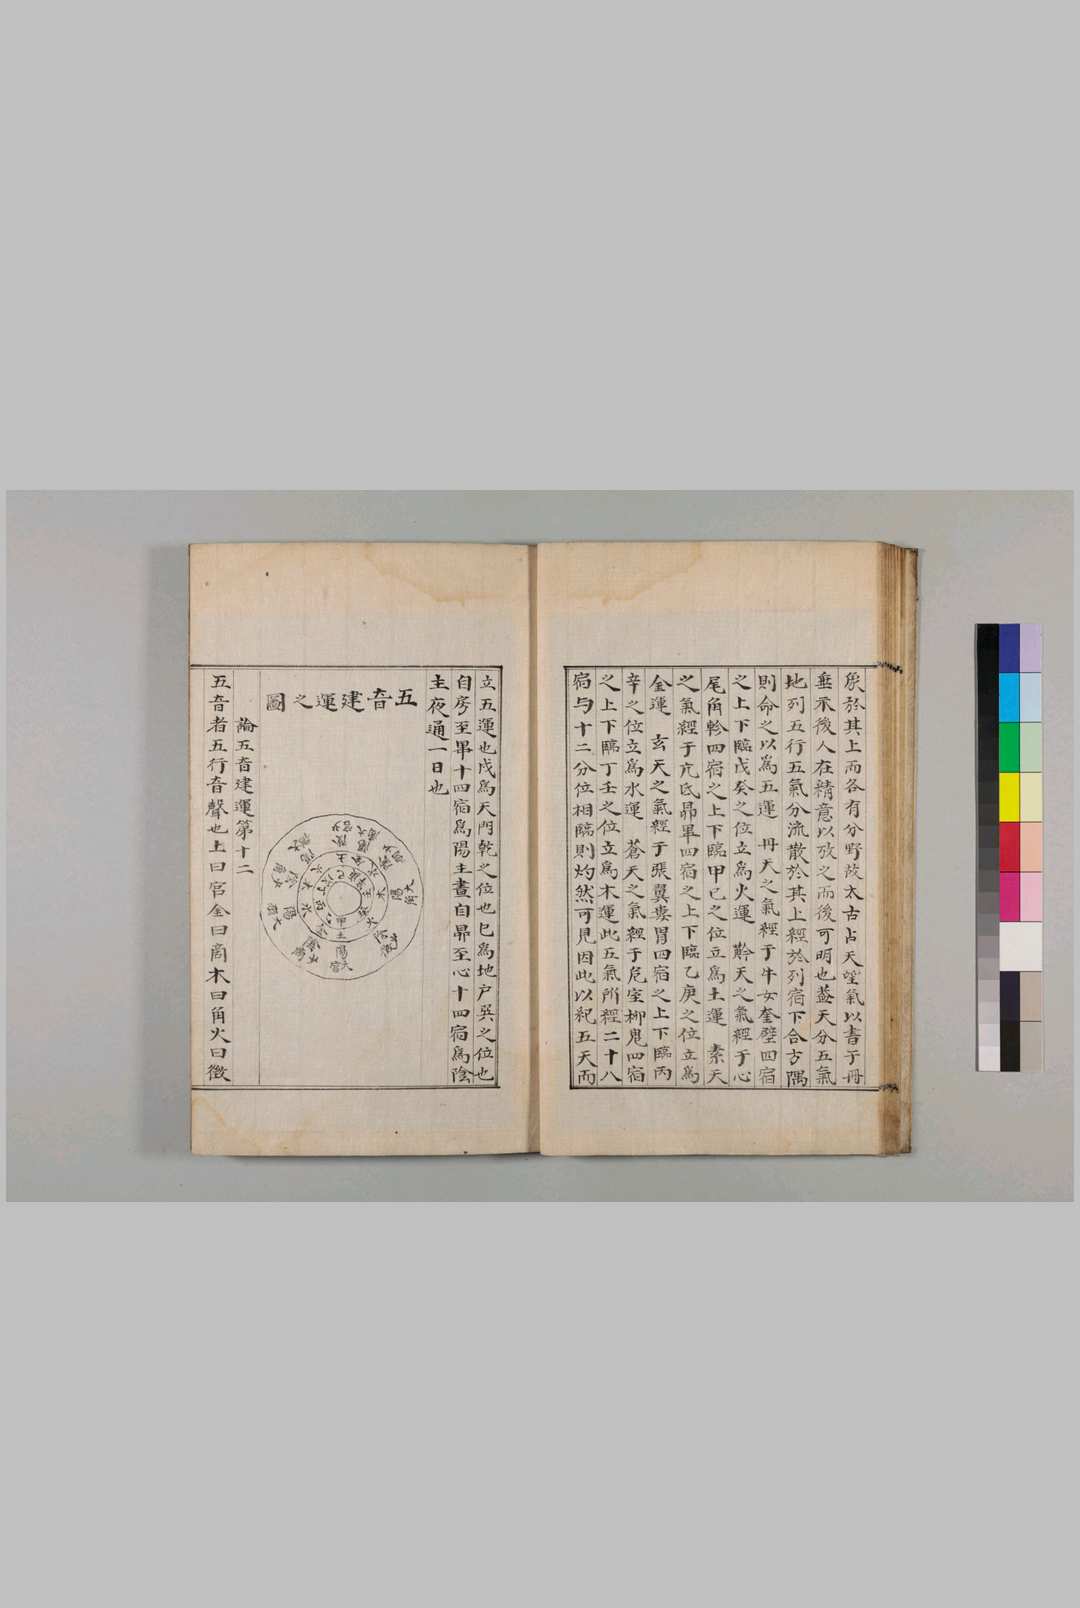 象於其上而各有分野故太古占天望氣以書于冊
垂示後人在精意以攷之而後可明也蓋天分五氣
地列五行五氣分流散於其上經於列宿下合方隅
則命之以爲五運　丹天之氣經于牛女奎壁四宿
之上下臨戊癸之位立爲火運　黅天之氣經于心
尾角軫四宿之上下臨甲己之位立爲土運　素天
之氣經于亢氐昴畢四宿之上下臨乙庚之位立爲
金運　玄天之氣經于張翼婁胃四宿之上下臨丙
辛之位立爲水運　蒼天之氣經于危室柳鬼四宿
之上下臨丁壬之位立爲木運此五氣所經二十八
宿与十二分位相臨則灼然可見因此以紀五天而
立五運也戌爲天門乾之位也巳爲地户巽之位也
自房至畢十四宿爲陽主晝自昴至心十四宿爲陰
主夜通一日也
五音建運之圖
論五音建運第十二
五音者五行音聲也土曰宮金曰商木曰角火曰徵